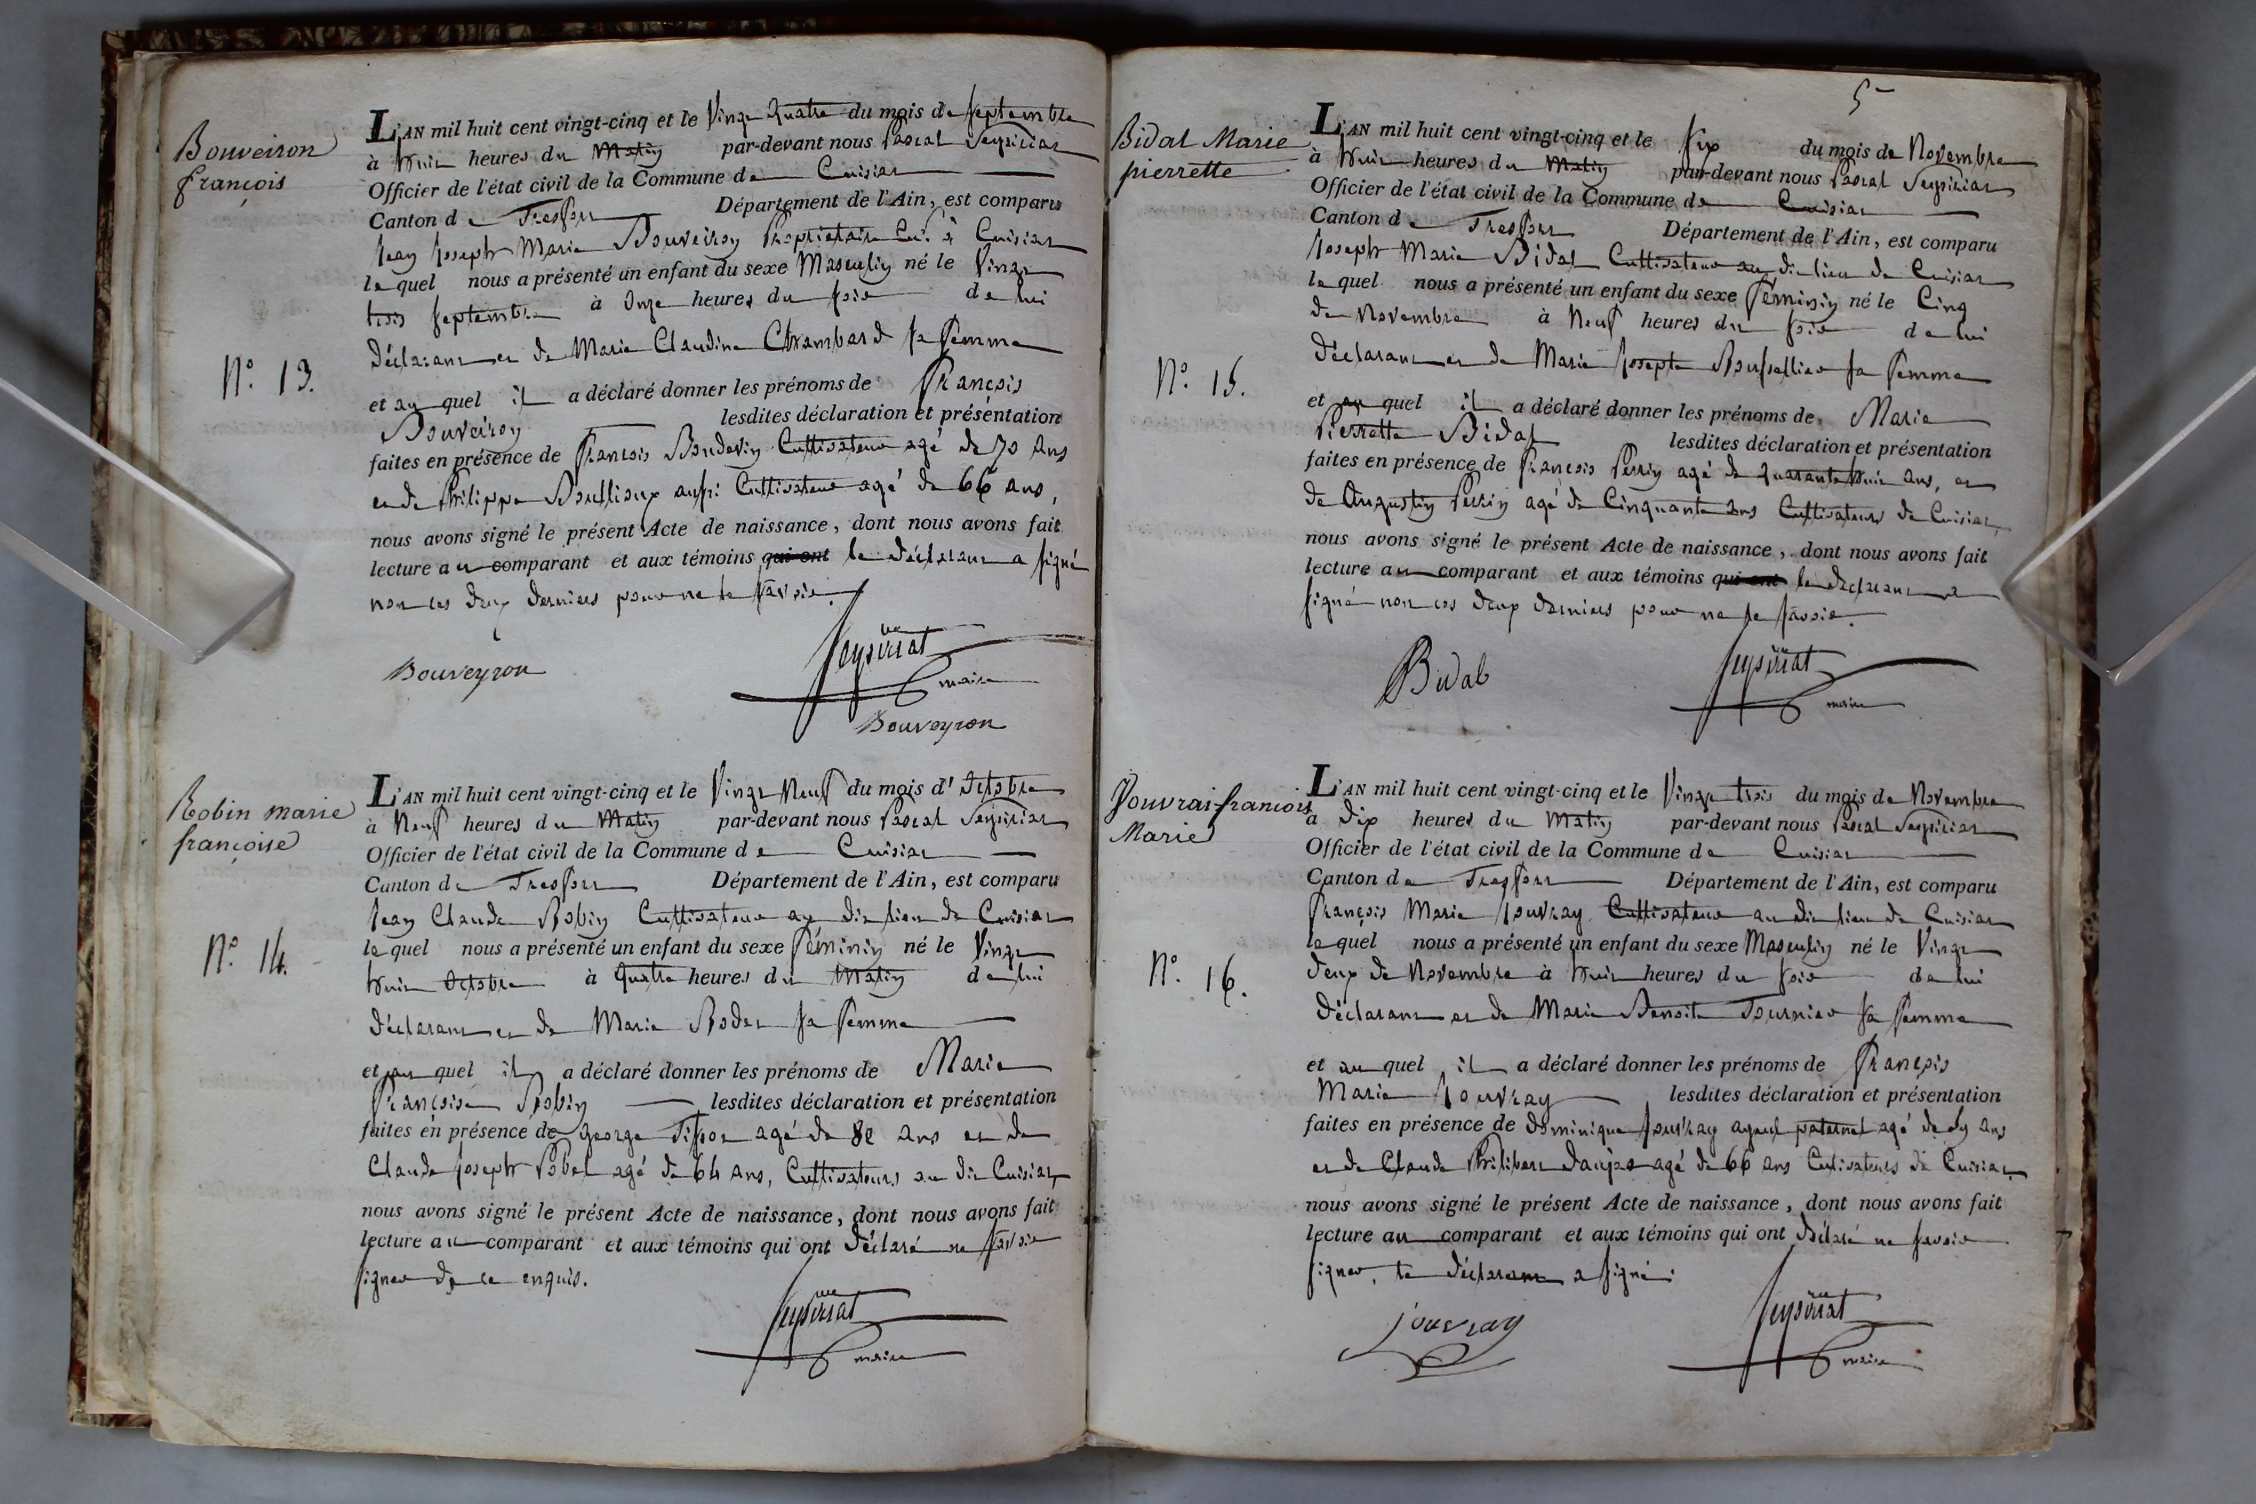 Bouveiron
françois
N.° 13.
L'AN mil huit cent vingt-cinq et le Vingt Quatre du mois de Septembre
à huit heures du Matin par-devant nous Pascal Seysiriat
Officier de l'état civil de la Commune de Cuisiat
Canton de Treffort Département de l'Ain, est comparu
Jean Joseph Marie Bouveiron Propriétaire à Cuisiat
lequel nous a présenté un enfant du sexe Masculin né le Vingt
trois Septembre à Onze heures du soir de lui
Déclarant et de Marie Claudine Chambard sa femme
et auquel il a déclaré donner les prénoms de François
Bouveiron lesdites déclaration et présentation
faites en présence de François Boudevin Cultivateur agé de 70 ans
et de Philippe Boullioux aussi Cultivateur agé de 66 ans,
nous avons signé le présent Acte de naissance, dont nous avons fait
lecture au comparant et aux témoins qui ont le déclarant a signé
non les deux derniers pour ne le savoir.
Bouveyron
Seysiriat
maire
Bouveyron
Robin marie
françoise
N.° 14.
L'AN mil huit cent vingt-cinq et le Vingt Neuf du mois d'Octobre
à Neuf heures du Matin par-devant nous Pascal Seysiriat
Officier de l'état civil de la Commune de Cuisiat
Canton de Treffort Département de l'Ain, est comparu
Jean Claude Robin Cultivateur au dit lieu de Cuisiat
lequel nous a présenté un enfant du sexe Féminin né le Vingt
huit Octobre à Quatre heures du Matin de lui
Déclarant et de Marie Rodet sa femme
et auquel il a déclaré donner les prénoms de Marie
Françoise Robin lesdites déclaration et présentation
faites en présence de George Tissot agé de ans et de
Claude Joseph Pobel agé de 64 ans, Cultivateurs au dit Cuisiat
nous avons signé le présent Acte de naissance, dont nous avons fait
lecture au comparant et aux témoins qui ont déclaré ne savoir
signer de ce enquis.
Seysiriat
maire
5
Bidat Marie
pierrette
N.° 15.
L'AN mil huit cent vingt-cinq et le Six du mois de Novembre
à huit heures du Matin par-devant nous Pascal Seysiriat
Officier de l'état civil de la Commune de Cuisiat
Canton de Treffort Département de l'Ain, est comparu
Joseph Marie Bidat Cultivateur au dit lieu de Cuisiat
lequel nous a présenté un enfant du sexe Féminin né le Cinq
de Novembre à Neuf heures du soir de lui
Déclarant et de Marie Josepte Boussellier sa femme
et auquel il a déclaré donner les prénoms de Marie
Pierrette Bidat lesdites déclaration et présentation
faites en présence de François Perrin agé de quarante huit ans, et
de Augustin Perrin agé de Cinquante ans Cultivateurs de Cuisiat,
nous avons signé le présent Acte de naissance, dont nous avons fait
lecture au comparant et aux témoins qui ont le déclarant a
signé non les deux derniers pour ne le savoir.
Bidat
Seysiriat
maire
Jouvrai françois
Marie
N.° 16.
L'AN mil huit cent vingt-cinq et le Vingt trois du mois de Novembre
à Dix heures du Matin par-devant nous Pascal Seysiriat
Officier de l'état civil de la Commune de Cuisiat
Canton de Treffort Département de l'Ain, est comparu
François Marie Jouvray Cultivateur au dit lieu de Cuisiat
lequel nous a présenté un enfant du sexe Masculin né le Vingt
deux de Novembre à huit heures du soir de lui
Déclarant et de Marie Benoite Tournier sa femme
et auquel il a déclaré donner les prénoms de François
Marie Jouvray lesdites déclaration et présentation
faites en présence de Dominique Jouvray ayeul paternel agé de ans
et de Claude Philibert Daujat agé de 66 ans Cultivateurs de Cuisiat
nous avons signé le présent Acte de naissance, dont nous avons fait
lecture au comparant et aux témoins qui ont déclaré ne savoir
signer, le déclarant a signé.
jouvray
Seysiriat
maire